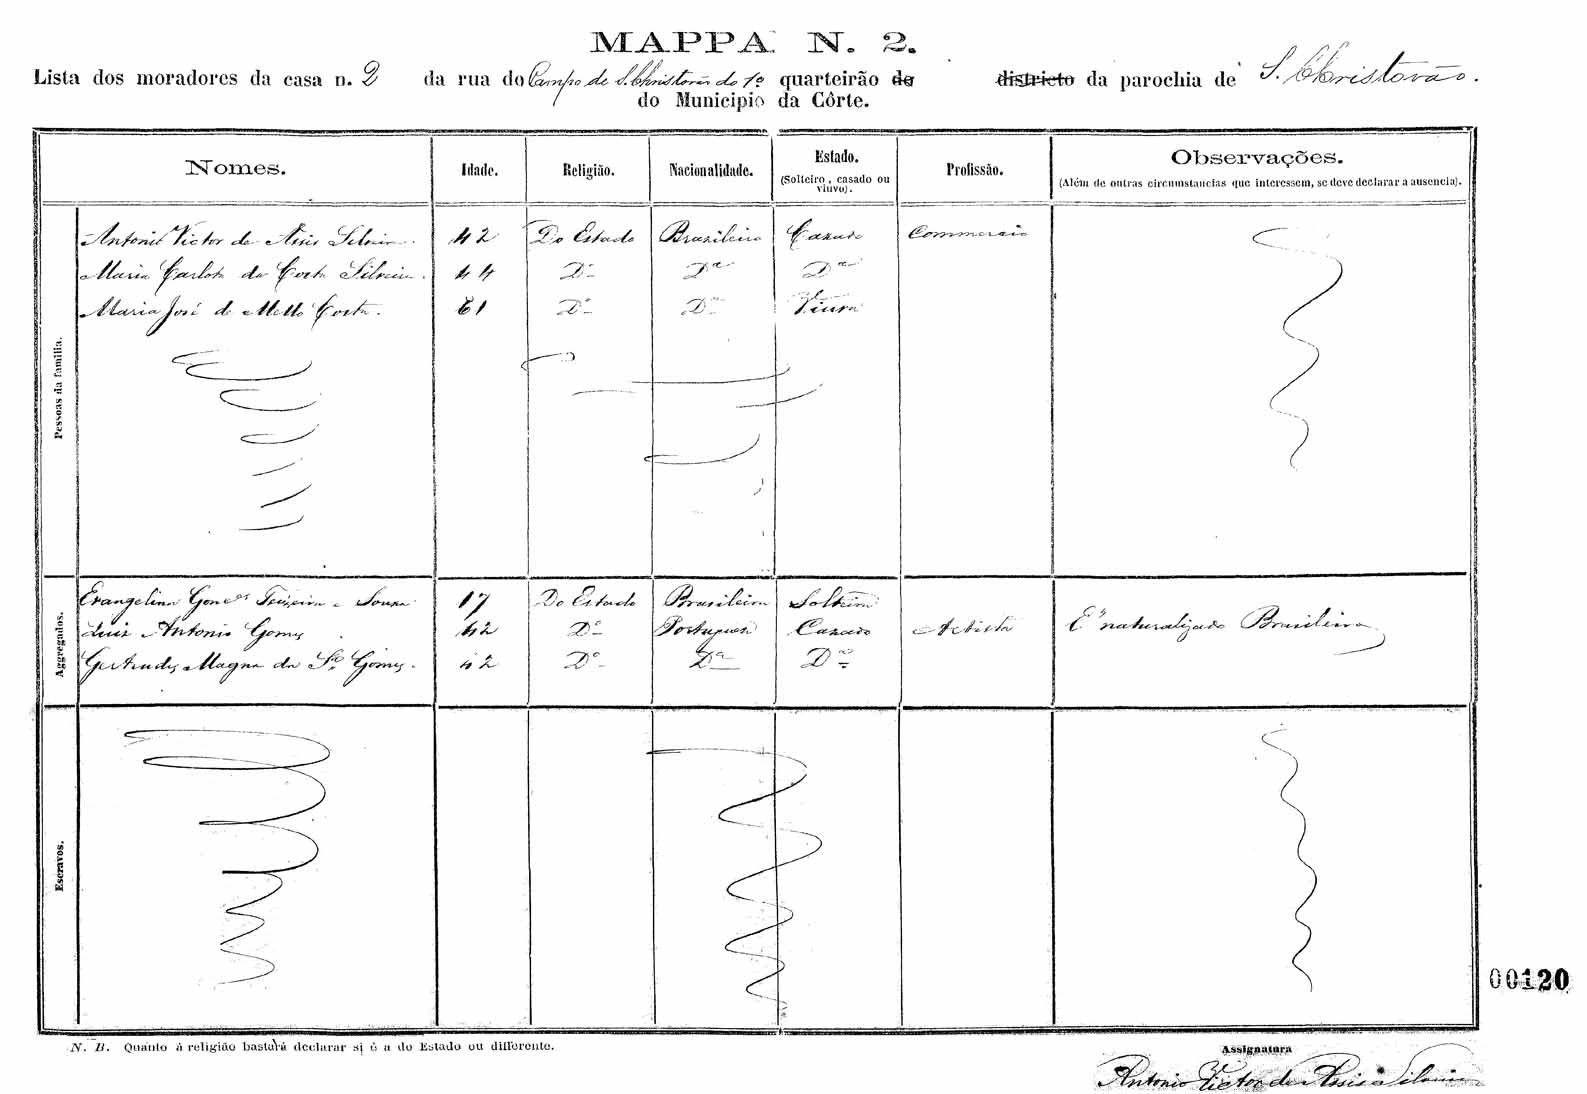 MAPPA N. 2.
Lista dos moradores da casa n. 2 da rua do Campo de S. Christovão do 1º quarteirão do districto da parochia de S. Christovão.
do Municipio da Côrte.
Nomes. Idade. Religião. Nacionalidade. Estado. (Solteiro, casado ou viuvo). Profissão. Observações. (Além de outras circumstancias que interessem, se deve declarar a ausencia).
Pessoas da familia.
Antonio Victor de Assis Silveira 42 Do Estado Brasileiro Cazado Commercio
Maria Carlota da Costa Silveira. 44 Dº Dª Dª
Maria José de Mello Costa. 61 Dº Dª Viuva
Aggregados.
Evangelina Gonces Teixeira e Souza 17 Do Estado Brasileira Solteira
Luiz Antonio Gomes 42 Dº Portuguesa Cazado Artista E' naturalizado Brasileiro
Gertrudes Magna da Sª Gomes. 42 Dº Dª Dª
Escravos.
00120
N. B. Quanto á religião bastará declarar si é a do Estado ou differente.
Assignatura
Antonio Victor de Assis Silveira